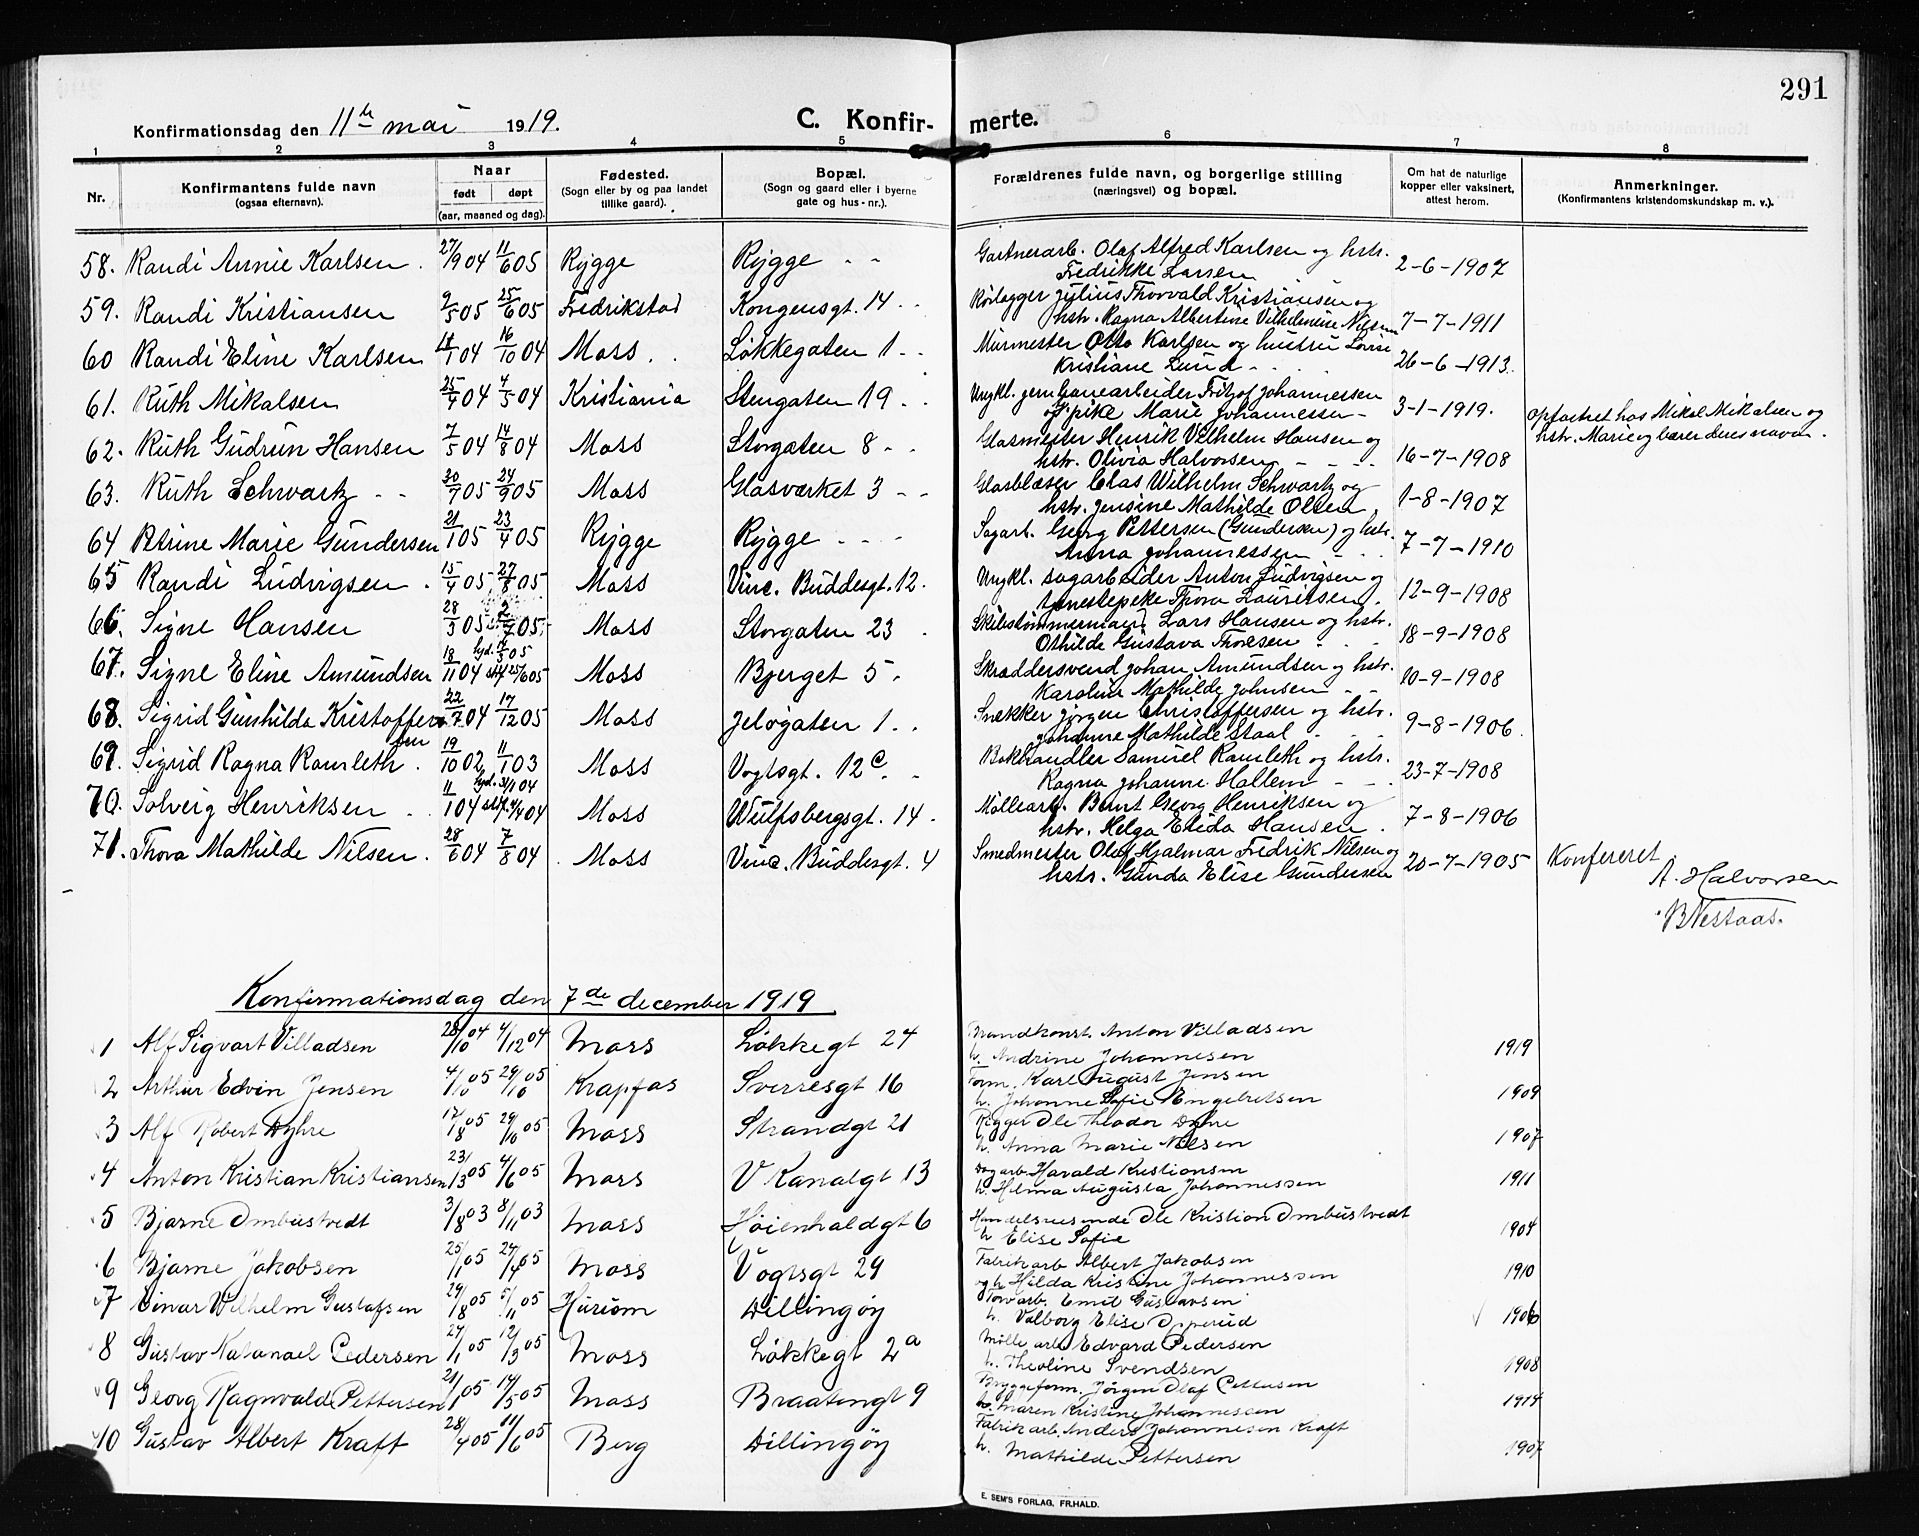 291
Konfirmationsdag den 11te mai 1919.
C. Konfir- merte.
1 2 3 4 5 6 7 8
Nr. Konfirmantens fulde navn (ogsaa efternavn). Naar født døpt (aar, maaned og dag). Fødested. (Sogn eller by og paa landet tillike gaard). Bopæl. (Sogn og gaard eller i byerne gate og hus-nr.). Forældrenes fulde navn, og borgerlige stilling (næringsvei) og bopæl. Om hat de naturlige kopper eller vaksinert, attest herom. Anmerkninger. (Konfirmantens kristendomskundskap m. v.).
58. Randi Annie Karlsen. 27/9 04 11/6 05 Rygge Rygge Gartnerarb. Olaf Alfred Karlsen og hstr. Fredrikke Larsen 2-6-1907
59. Randi Kristiansen 9/5 05 25/6 05 Fredrikstad Kongensgt. 14 Rørlægger Julius Thorvald Kristiansen og hstr. Ragna Albertine Vilhelmine Nilsen 7-7-1911
60 Randi Eline Karlsen 04 16/10 04 Moss Løkkegaten 1 Murmester Otto Karlsen og hustru Lovise Kristiane Lund 26-6-1913.
61. Ruth Mikalsen 25/4 04 4/5 04 Kristiania Stengaten 19 Ungkl. jernbanearbeider Fritjof Johannessen og pike Marie Johannessen 3-1-1919. opfostret hos Mikal Mikalsen og hstr. Marie og bærer deres navn.
62. Ruth Gudrun Hansen 7/5 04 14/8 04 Moss Storgaten 8 Glasmester Henrik Vilhelm Hansen og hstr. Olivia Halvorsen 16-7-1908
63. Ruth Schwartz 30/7 05 24/9 05 Moss Glasværket 3 Glasblæser Clas Wilhelm Schwartz og hstr. Jensine Mathilde Olsen 1-8-1907
64 Petrine Marie Gundersen 21/1 05 23/4 05 Rygge Rygge Sagarb. Georg Pettersen (Gundersen) og hstr. Anna Johannessen 7-7-1910
65 Randi Ludvigsen. 15/4 05 27/8 05 Moss Vinc. Buddesgt. 12. Ungkl. sagarbeider Anton Ludvigsen og tjenestepike Thora Lauritsen. 12-9-1908
66. Signe Hansen 28/3 05 2/7 05 Moss Storgaten 23 Skibstømmermand Lars Hansen og hstr. Othilde Gustava Thoresen 18-9-1908
67. Signe Eline Amundsen 18/11 04 25/6 05 Moss Bjerget 5 Skræddersvend Johan Amundsen og hstr. Karoline Mathilde Johnsen 10-9-1908
68. Sigrid Gunhilda Kristoffersen 22/7 04 17/12 05 Moss Jeløgaten 1 Snekker Jørgen Christoffersen og hstr. Johanne Mathilde Staal 9-8-1906.
69. Sigrid Ragna Ramleth. 19/10 02 11/1 03 Moss Vogtsgt. 12c. Bokhandler Samuel Ramleth og hstr. Ragna Johanne Hallem 23-7-1908
70. Solveig Henriksen 11/1 04 4/4 04 Moss Wulfsbergsgt. 14 Møllearb. Bernt Georg Henriksen og hstr. Helga Elida Hansen. 7-8-1906
71. Thora Mathilde Nilsen. 28/6 04 7/8 04 Moss Vinc. Buddesgt. 4 Smedmester Olaf Hjalmar Fredrik Nilsen og hstr. Gunda Elise Gundersen 20-7-1905 Konfereret
A. Halvorsen
B Nestaas.
Konfirmationsdag den 7de december 1919
1 Alf Sigvart Villadsen 28/10 04 4/12 04 Moss Løkkegt 24 Brandkonst. Anton Villadsen h. Andrine Johannesen 1919
2 Arthur Edvin Jensen 4/10 05 29/10 05 Krapfos Sverresgt 16 Form. Karl August Jensen h. Johanne Sofie Engebretsen 1909
3 Alf Robert Dyhre 17/8 05 29/10 05 Moss Strandgt 21 Rigger Ole Theodor Dyhre h. Anna Marie Nilsen 1907
4 Anton Kristian Kristiansen 23/3 05 4/6 05 Moss V Kanalgt 13 Dagarb. Harald Kristiansen h. Helma Augusta Johannessen 1911
5 Bjarne Ombustvedt 3/8 03 8/11 03 Moss Høienhaldgt 6 Handelsreisende Ole Kristian Ombustvedt h Elise Sofie 1904
6 Bjarne Jakobsen 25/1 05 24/4 05 Moss Vogtsgt 29 Fabrikarb Albert Jakobsen og h Hilda Kristine Johannessen 1910
7 Einar Wilhelm Gustafsen 29/8 05 5/11 05 Hurum Dillingøy Torvarb. Emil Gustavsen h. Valborg Elise Opperud 1906
8 Gustav Natanael Pedersen 27/1 05 12/3 05 Moss Løkkegt 2a Mølle arb Edvard Pedersen h. Theoline Svendsen 1908
9 Georg Ragnvald Pettersen 21/1 05 14/5 05 Moss Braatengt 9 Bryggeform. Jørgen Olaf Pettersen h. Maren Kristine Johannessen 1914
10 Gustav Albert Kraft 28/4 05 11/6 05 Berg Dillingøy Fabrikarb. Anders Johannesen Kraft h. Mathilde Pettersen 1907
E. SEM'S FORLAG, FR.HALD.